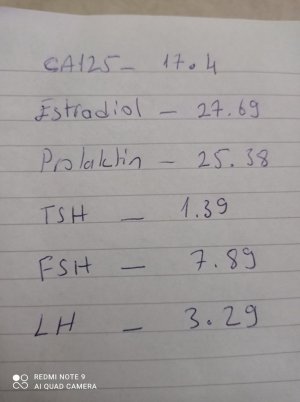 CA125 - 17.4
Estradiol - 27.69
Prolaktin - 25.38
TSH - 1.39
FSH - 7.89
LH - 3.29
REDMI NOTE 9
AI QUAD CAMERA